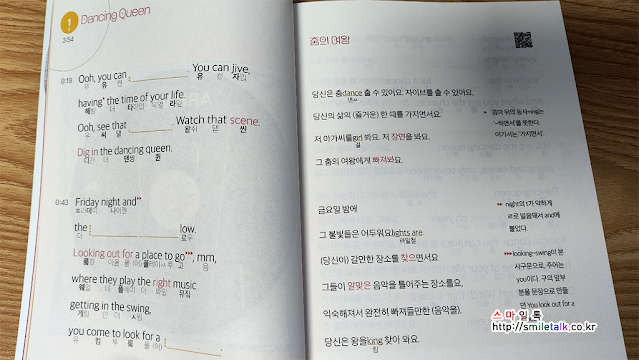 Dancing Queen
3:54
0:19 Ooh, you can ______ . You can jive,
having* the time of your life.
Ooh, see that ______ . Watch that scene.
Dig in the dancing queen.
0:43 Friday night and**
the ______ low.
Looking out for a place to go***, mm,
where they play the right music
getting in the swing,
you come to look for a ______ .
춤의 여왕
당신은 춤dance 출 수 있어요. 자이브를 출 수 있어요,
당신의 삶의 (즐거운) 한 때를 가지면서요.
저 아가씨를girl 봐요. 저 장면을 봐요.
그 춤의 여왕에게 빠져봐요.
* 콤마 뒤의 동사+ing는
'~하면서'를 뜻한다.
여기서는 '가지면서'.
금요일 밤에
그 불빛들은 어두워요lights are.
(당신이) 갈만한 장소를 찾으면서요
그들이 알맞은 음악을 틀어주는 장소를요,
익숙해져서 완전히 빠져들만한 (음악을),
당신은 왕을king 찾아 와요.
** night의 t가 약하게
ㄹ로 발음돼서 and에
붙었다.
*** looking~swing이 분
사구문으로, 주어는
you이다. 구의 앞부
분을 문장으로 만들
면 You look out for a
스마일톡
http://smiletalk.co.kr